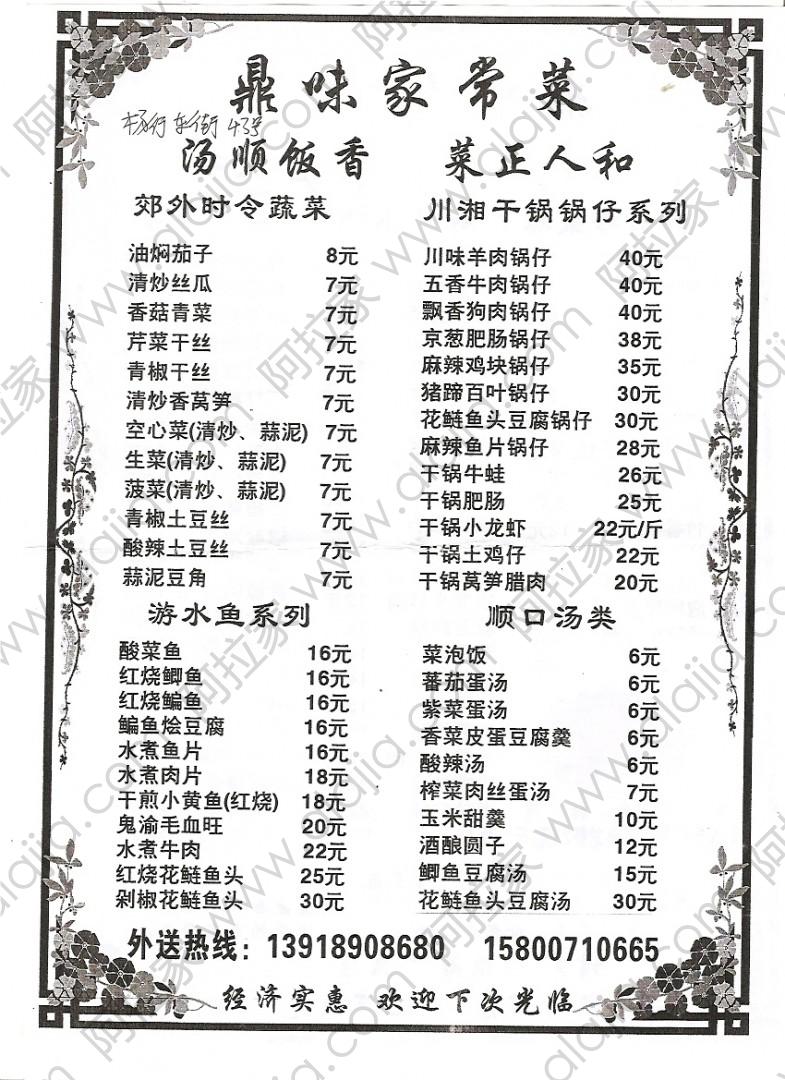 鼎味家常菜
杨行东街43号
汤顺饭香 菜正人和
郊外时令蔬菜
油焖茄子 8元
清炒丝瓜 7元
香菇青菜 7元
芹菜干丝 7元
青椒干丝 7元
清炒香莴笋 7元
空心菜(清炒、蒜泥) 7元
生菜(清炒、蒜泥) 7元
菠菜(清炒、蒜泥) 7元
青椒土豆丝 7元
酸辣土豆丝 7元
蒜泥豆角 7元
川湘干锅锅仔系列
川味羊肉锅仔 40元
五香牛肉锅仔 40元
飘香狗肉锅仔 40元
京葱肥肠锅仔 38元
麻辣鸡块锅仔 35元
猪蹄百叶锅仔 30元
花鲢鱼头豆腐锅仔 30元
麻辣鱼片锅仔 28元
干锅牛蛙 26元
干锅肥肠 25元
干锅小龙虾 22元/斤
干锅土鸡仔 22元
干锅莴笋腊肉 20元
游水鱼系列
酸菜鱼 16元
红烧鲫鱼 16元
红烧鳊鱼 16元
鳊鱼烩豆腐 16元
水煮鱼片 16元
水煮肉片 18元
干煎小黄鱼(红烧) 18元
鬼渝毛血旺 20元
水煮牛肉 22元
红烧花鲢鱼头 25元
剁椒花鲢鱼头 30元
顺口汤类
菜泡饭 6元
蕃茄蛋汤 6元
紫菜蛋汤 6元
香菜皮蛋豆腐羹 6元
酸辣汤 6元
榨菜肉丝蛋汤 7元
玉米甜羹 10元
酒酿圆子 12元
鲫鱼豆腐汤 15元
花鲢鱼头豆腐汤 30元
外送热线：13918908680 15800710665
经济实惠 欢迎下次光临
阿拉家 www.alajia.com